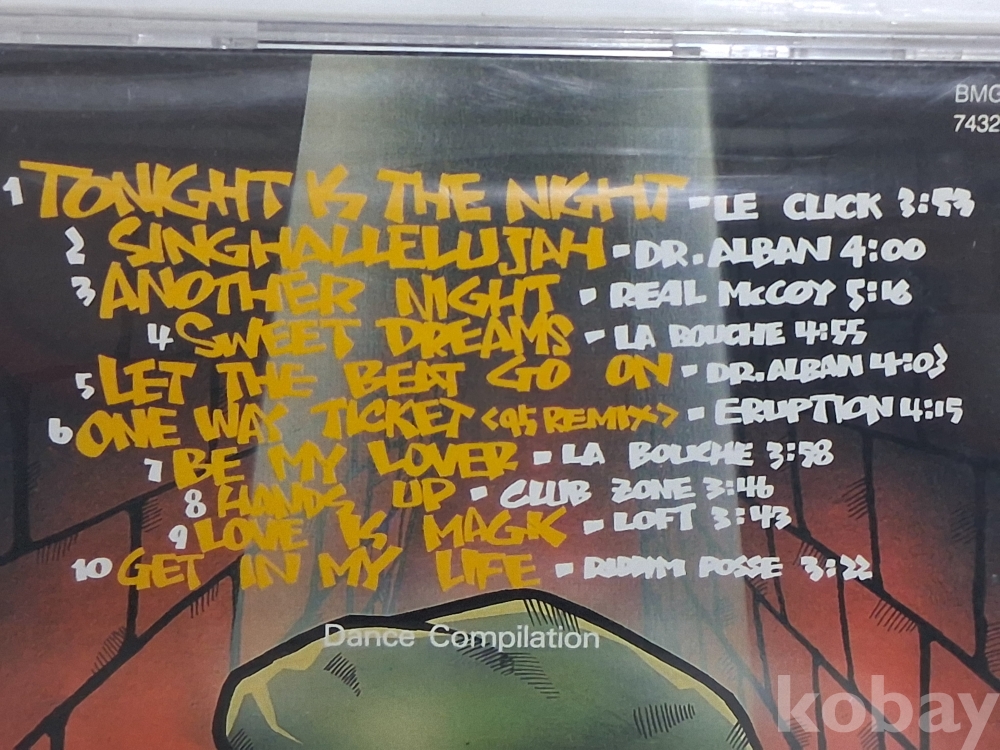 BMG
7432
1 TONIGHT IS THE NIGHT - LE CLICK 3:53
2 SING HALLELUJAH - DR. ALBAN 4:00
3 ANOTHER NIGHT - REAL McCOY 5:16
4 SWEET DREAMS - LA BOUCHE 4:55
5 LET THE BEAT GO ON - DR. ALBAN 4:03
6 ONE WAY TICKET <95 REMIX> - ERUPTION 4:15
7 BE MY LOVER - LA BOUCHE 3:58
8 HANDS UP - CLUB ZONE 3:46
9 LOVE IS MAGIK - LOFT 3:43
10 GET IN MY LIFE - RIDDYM POSSE 3:22
Dance Compilation
kobay